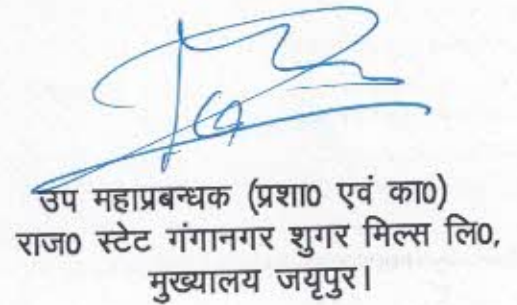 उप महाप्रबन्धक (प्रशा0 एवं का0)
राज0 स्टेट गंगानगर शुगर मिल्स लि0,
मुख्यालय जयृपुर।